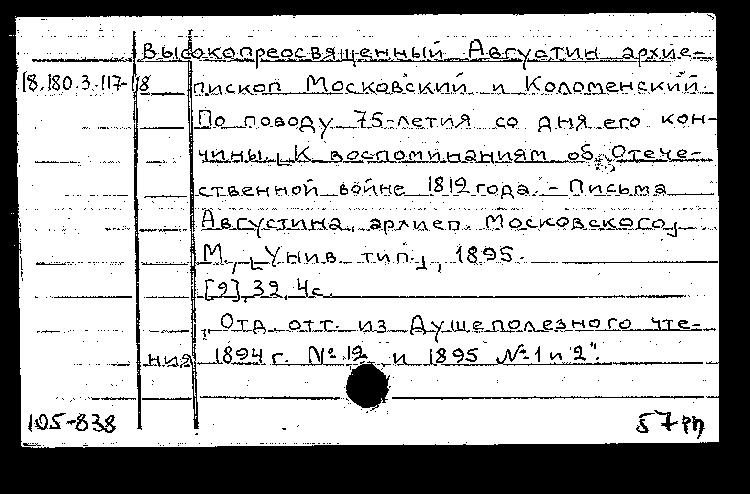 Высокопреосвященный Августин архие-
18.180.3.117-18 пископ Московский и Коломенский.
По поводу 75-летия со дня его кон-
чины. К воспоминаниям об Отече-
ственной войне 1812 года. - Письма
Августина, архиеп. Московского,
М., [Унив. тип.], 1895.
[2], 32, 4 с.
„Отд. отт. из Душеполезного чте-
ния 1894 г. № 12 и 1895 № 1 и 2".
105-838 57